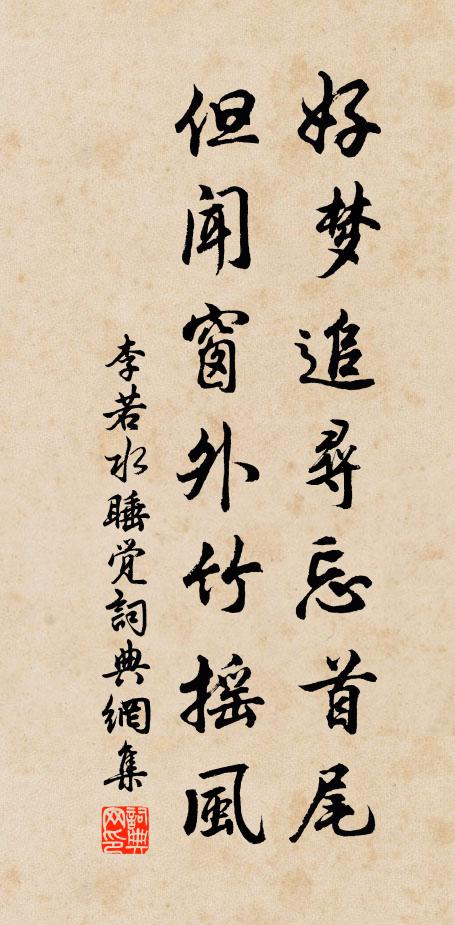 好梦追尋忘首尾
但闻窗外竹摇風
李若水睡觉詞典網集
詞典
网印